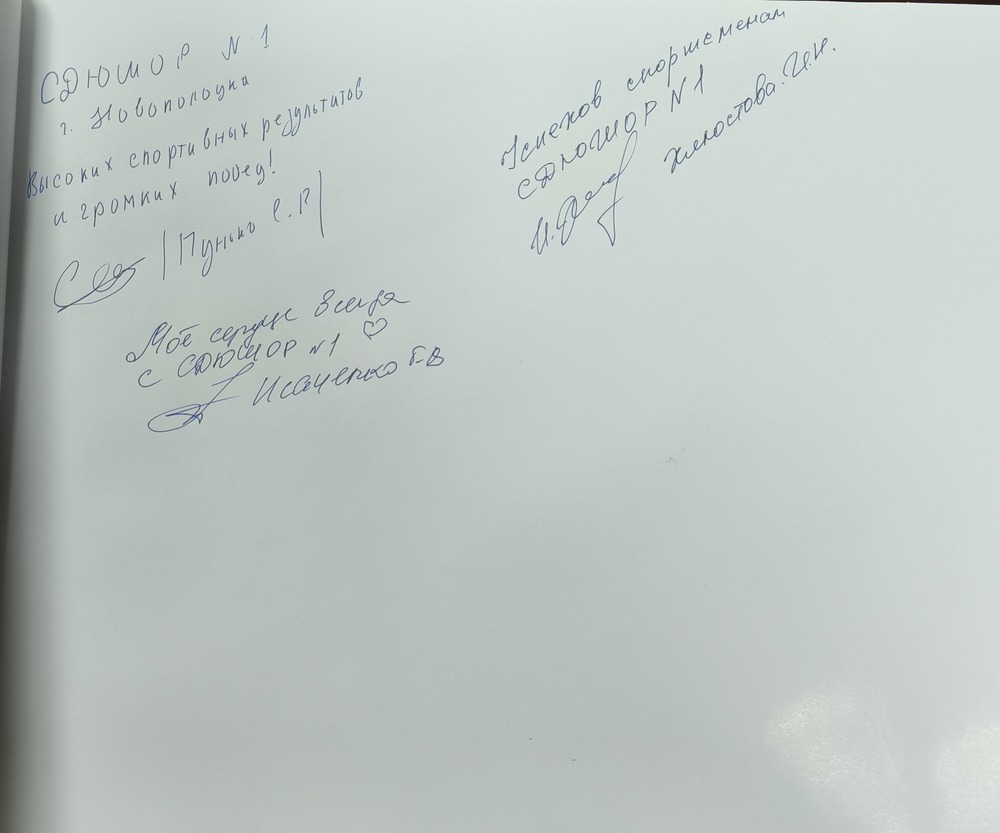 СДЮШОР N 1
г. Новополоцка
Высоких спортивных результатов
и громких побед!
|Пунько С.Р|
Моё сердце всегда
с СДЮШОР N1 ♡
Исаченко Г.В
Успехов спортсменам
СДЮШОР N1
Хлюстова И.Н.